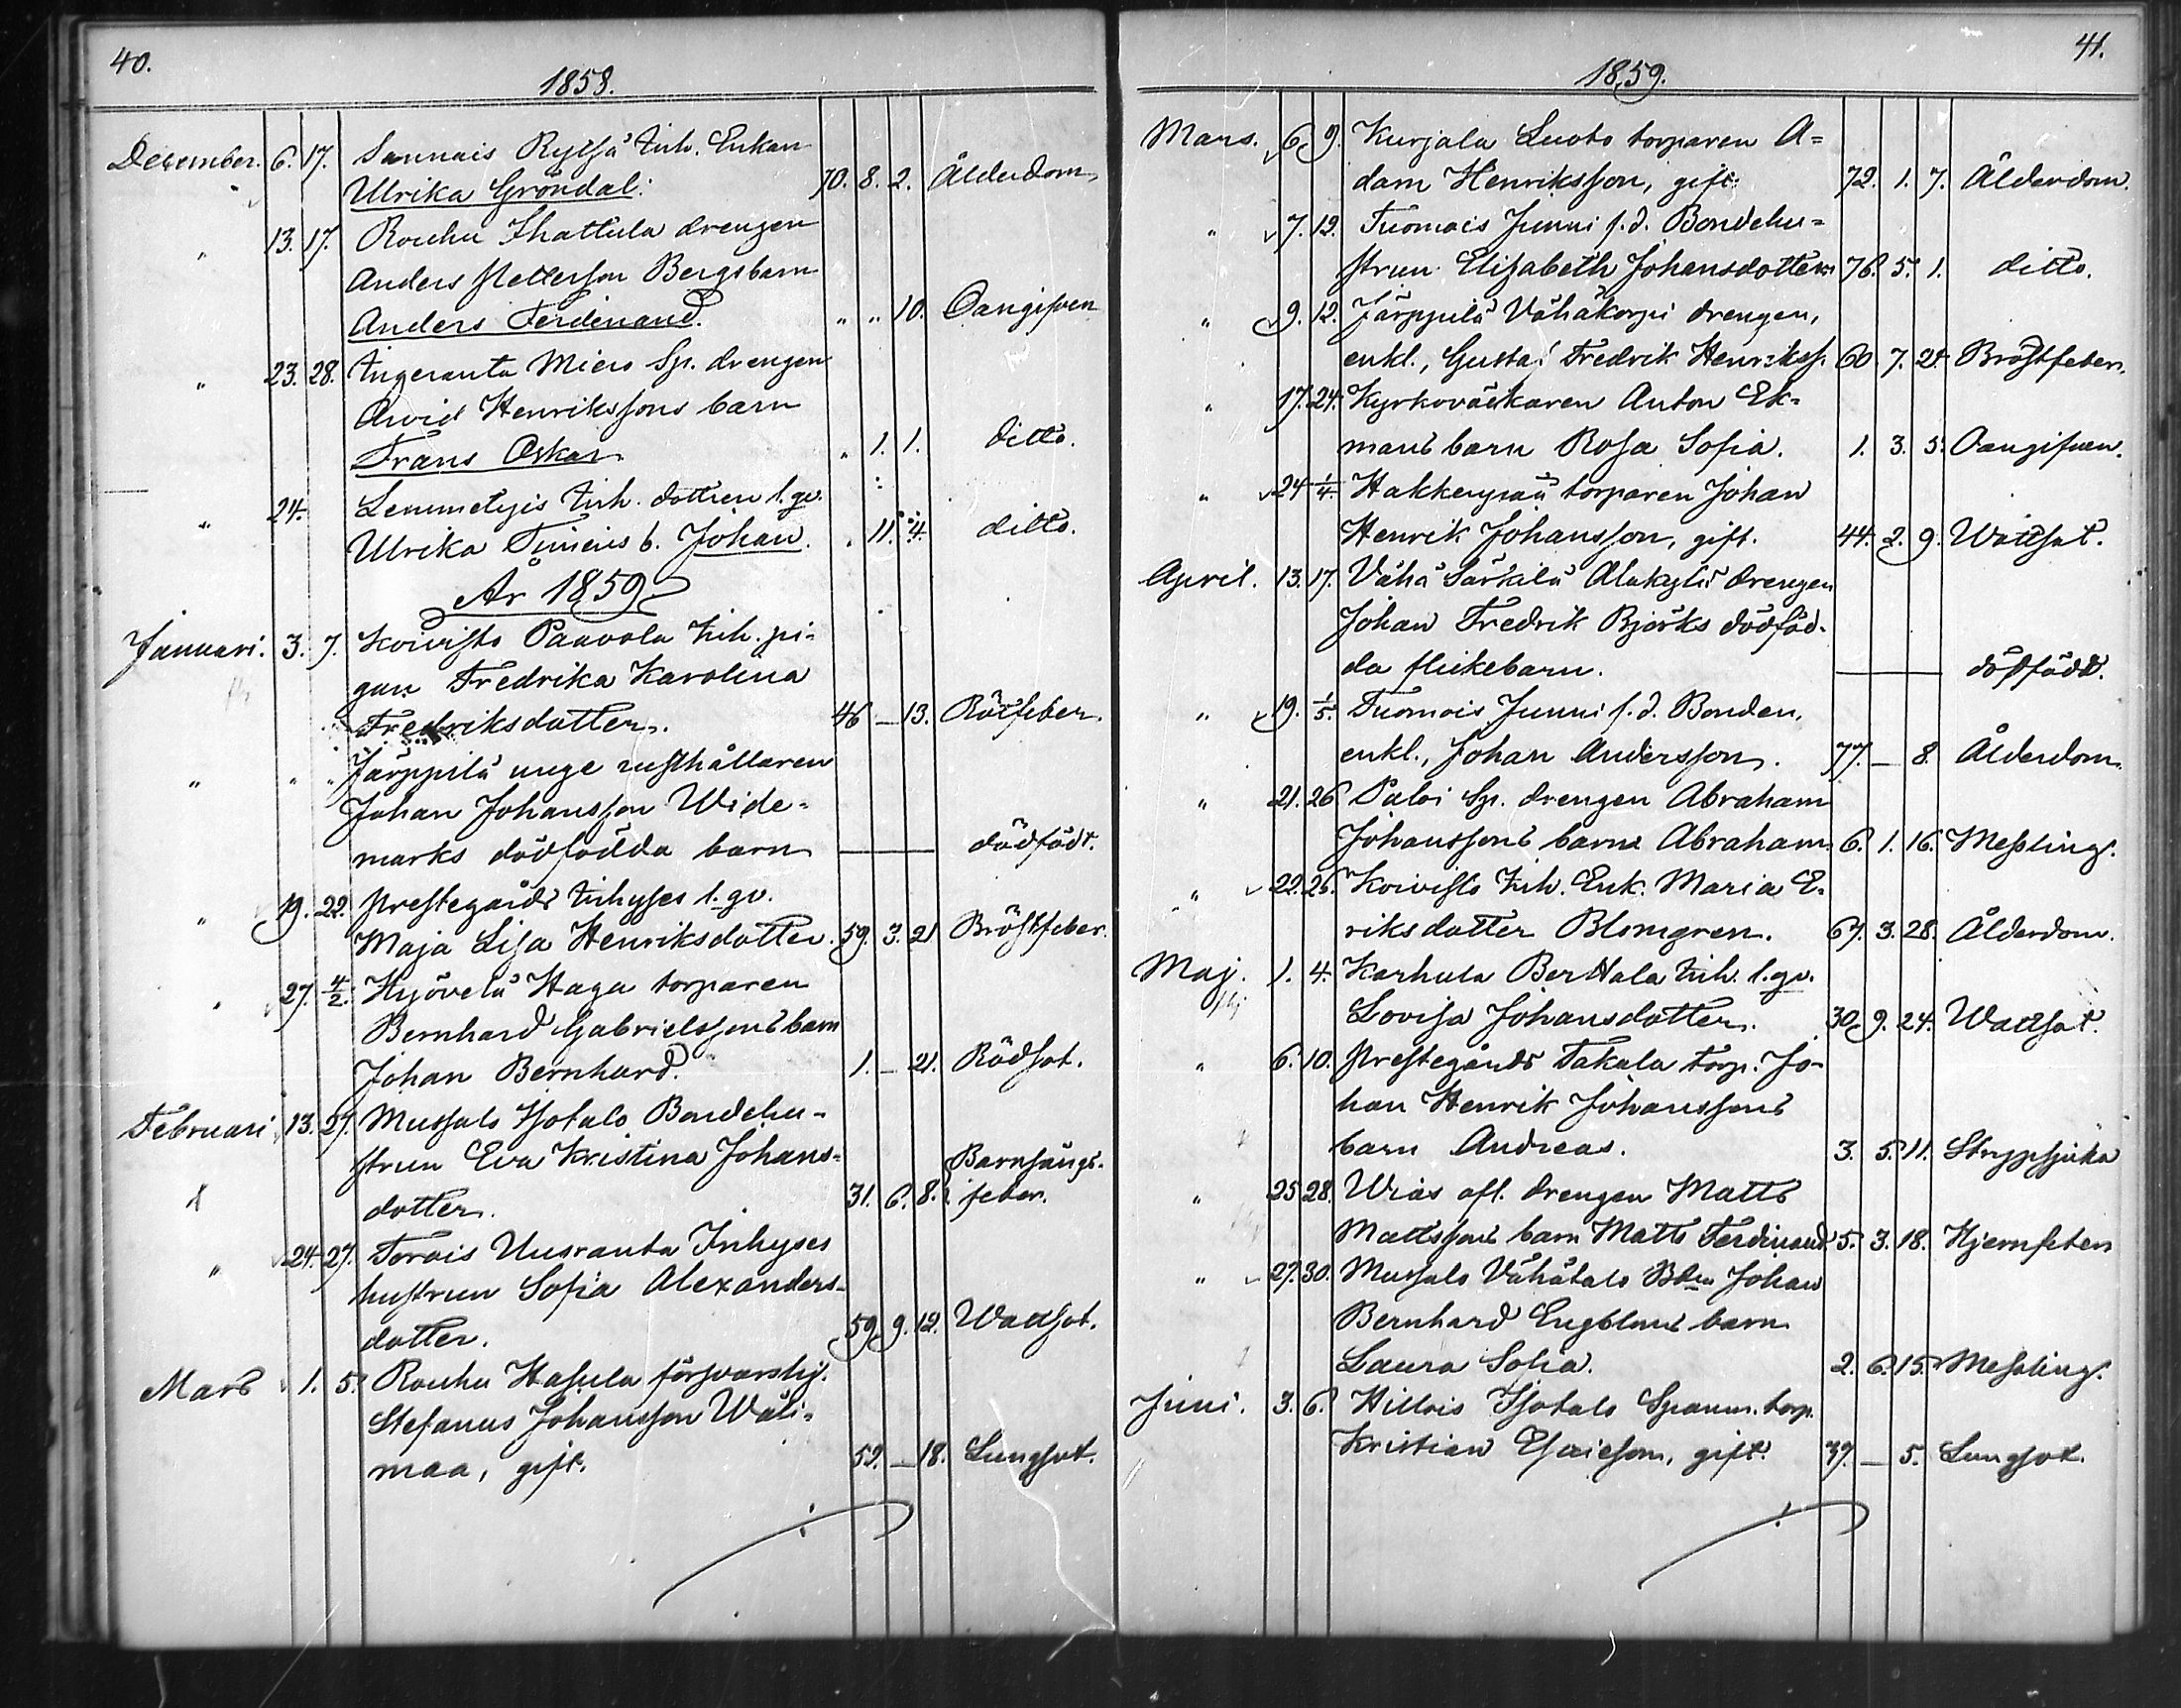 40.
1858.
December. 6. 17. Sannais Rytsä Inh. Enkan
Ulrika Gröndal. 70. 8. 2. Ålderdom
" 13. 17. Rouhu Ihattula drengen
Anders Petterson Bergs barn
Anders Ferdinand. " " 10. Oangifven
" 23. 28. Ingeranta Sp. drengen
Arvid Henrikssons barn
Frans Oskar " 1. 1. ditto.
" 24. Lemmetyis Inh. dottren l. qv.
Ulrika b. Johan. " 11. 4. ditto.
År 1859
Januari. 3. 7. Koivisto Paavola Inh. pi-
gan Fredrika Karolina
Fredriksdotter. 46 — 13. Rötfeber.
" " " Järppilä unge rusthållaren
Johan Johansson Wide-
marks dödfödda barn —— dödfödt.
" 19. 22. Prestegårds Inhyses l. qv.
Maja Lisa Henriksdotter. 59. 3. 21 Bröstfeber.
" 27. 4/2. Hyövelä Haga torparen
Bernhard Gabrielssons barn
Johan Bernhard. 1. — 21. Rödsot.
Februari 13. 27. Mussalo Isotalo Bondehu-
strun Eva Kristina Johans-
dotter. 31. 6. 8. Barnsängs-
feber.
" 24. 27. Torais Uusranta Inhyses
hustrun Sofia Alexanders-
dotter. 59. 9. 12. Wattsot.
Mars 1. 5. Rouhu Hasula försvarslij.
Stefanus Johansson Wäli-
maa, gift. 52. — 18. Lungsot.
41.
1859.
Mars. 6. 9. Kurjala Luoto torparen A-
dam Henriksson, gift. 72. 1. 7. Ålderdom.
" 7. 12. Tuomois Junni f. d. Bondehu-
strun Elisabeth Johansdotter 76. 5. 1. ditto.
" 9. 12. Järppilä Vähäkorpi drengen,
enkl., Gustaf Fredrik Henrikss. 60 7. 24. Bröstfeber.
" 17. 24. Kyrkoväktaren Anton Ek-
mans barn Rosa Sofia. 1. 3. 5. Oangifven.
" 24 1/4. Hakkenpää torparen Johan
Henrik Johansson, gift. 44. 2. 9. Wattsot.
April. 13. 17. Vähä Särkilä Alakylä drengen
Johan Fredrik Björks dödföd-
da flickebarn. —— dödfödd.
" 19. 1/5. Tuomois Junni f. d. Bonden,
enkl., Johan Andersson. 77. — 8. Ålderdom.
" 21. 26. Paloi Sp. drengen Abraham
Johanssons barn Abraham 6. 1. 16. Messling.
" 22. 25. Koivisto Inh. Enk. Maria E-
riksdotter Blomgren. 67. 3. 28. Ålderdom.
Maj. 1. 4. Karhula Berttala Inh. l. qv.
Lovisa Johansdotter. 30. 9. 24. Wattsot.
" 6. 10. Prestegårds Takala torp. Jo-
han Henrik Johanssons
barn Andreas. 3. 5. 11. Strypsjuka
" 25 28. Wias afl. drengen Matts
Mattssons barn Matts Ferdinand. 5. 3. 18. Hjernfeber
" 27. 30. Mussalo Vähätalo Bden Johan
Bernhard Engbloms barn
Laura Sofia. 2. 6. 15. Messling.
Juni. 3. 6. Hillois Isotalo Spanm. torp.
Kristian Esaieson, gift. 37. — 5. Lungsot.